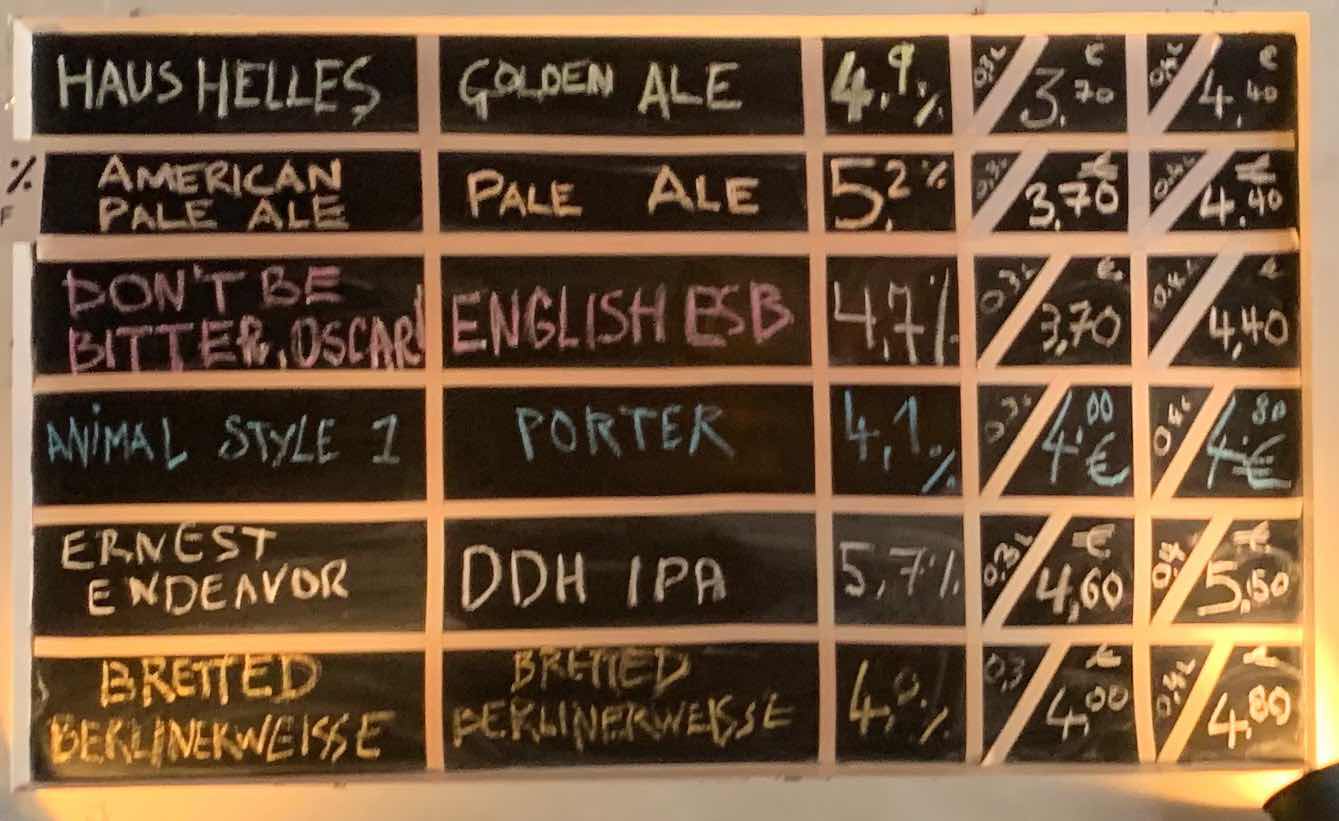 HAUS HELLES GOLDEN ALE 4,9% 0,3L 3,70 € 0,4L 4,40 €
%
AMERICAN
PALE ALE
PALE ALE 5,2% 0,3L 3,70 € 0,4L 4,40 €
F
DON'T BE
BITTER, OSCAR!
ENGLISH ESB 4,7% 0,3L 3,70 € 0,4L 4,40 €
ANIMAL STYLE 1 PORTER 4,1% 0,3L 4,00 € 0,4L 4,80 €
ERNEST
ENDEAVOR
DDH IPA 5,7% 0,3L 4,60 € 0,4L 5,50 €
BRETTED
BERLINERWEISSE
BRETTED
BERLINERWEISSE
4,0% 0,3 4,00 € 0,4L 4,80 €